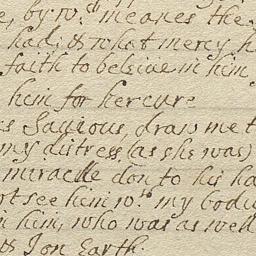 e, by wch meanes the
had; & what mercy h
faith to beleiue in him
him for her cure
s Sauious, draw me t
my distress, (as she was)
miraclle don to his ha
ot see him wth my bodi
n him, who was as well
is I on Earth.